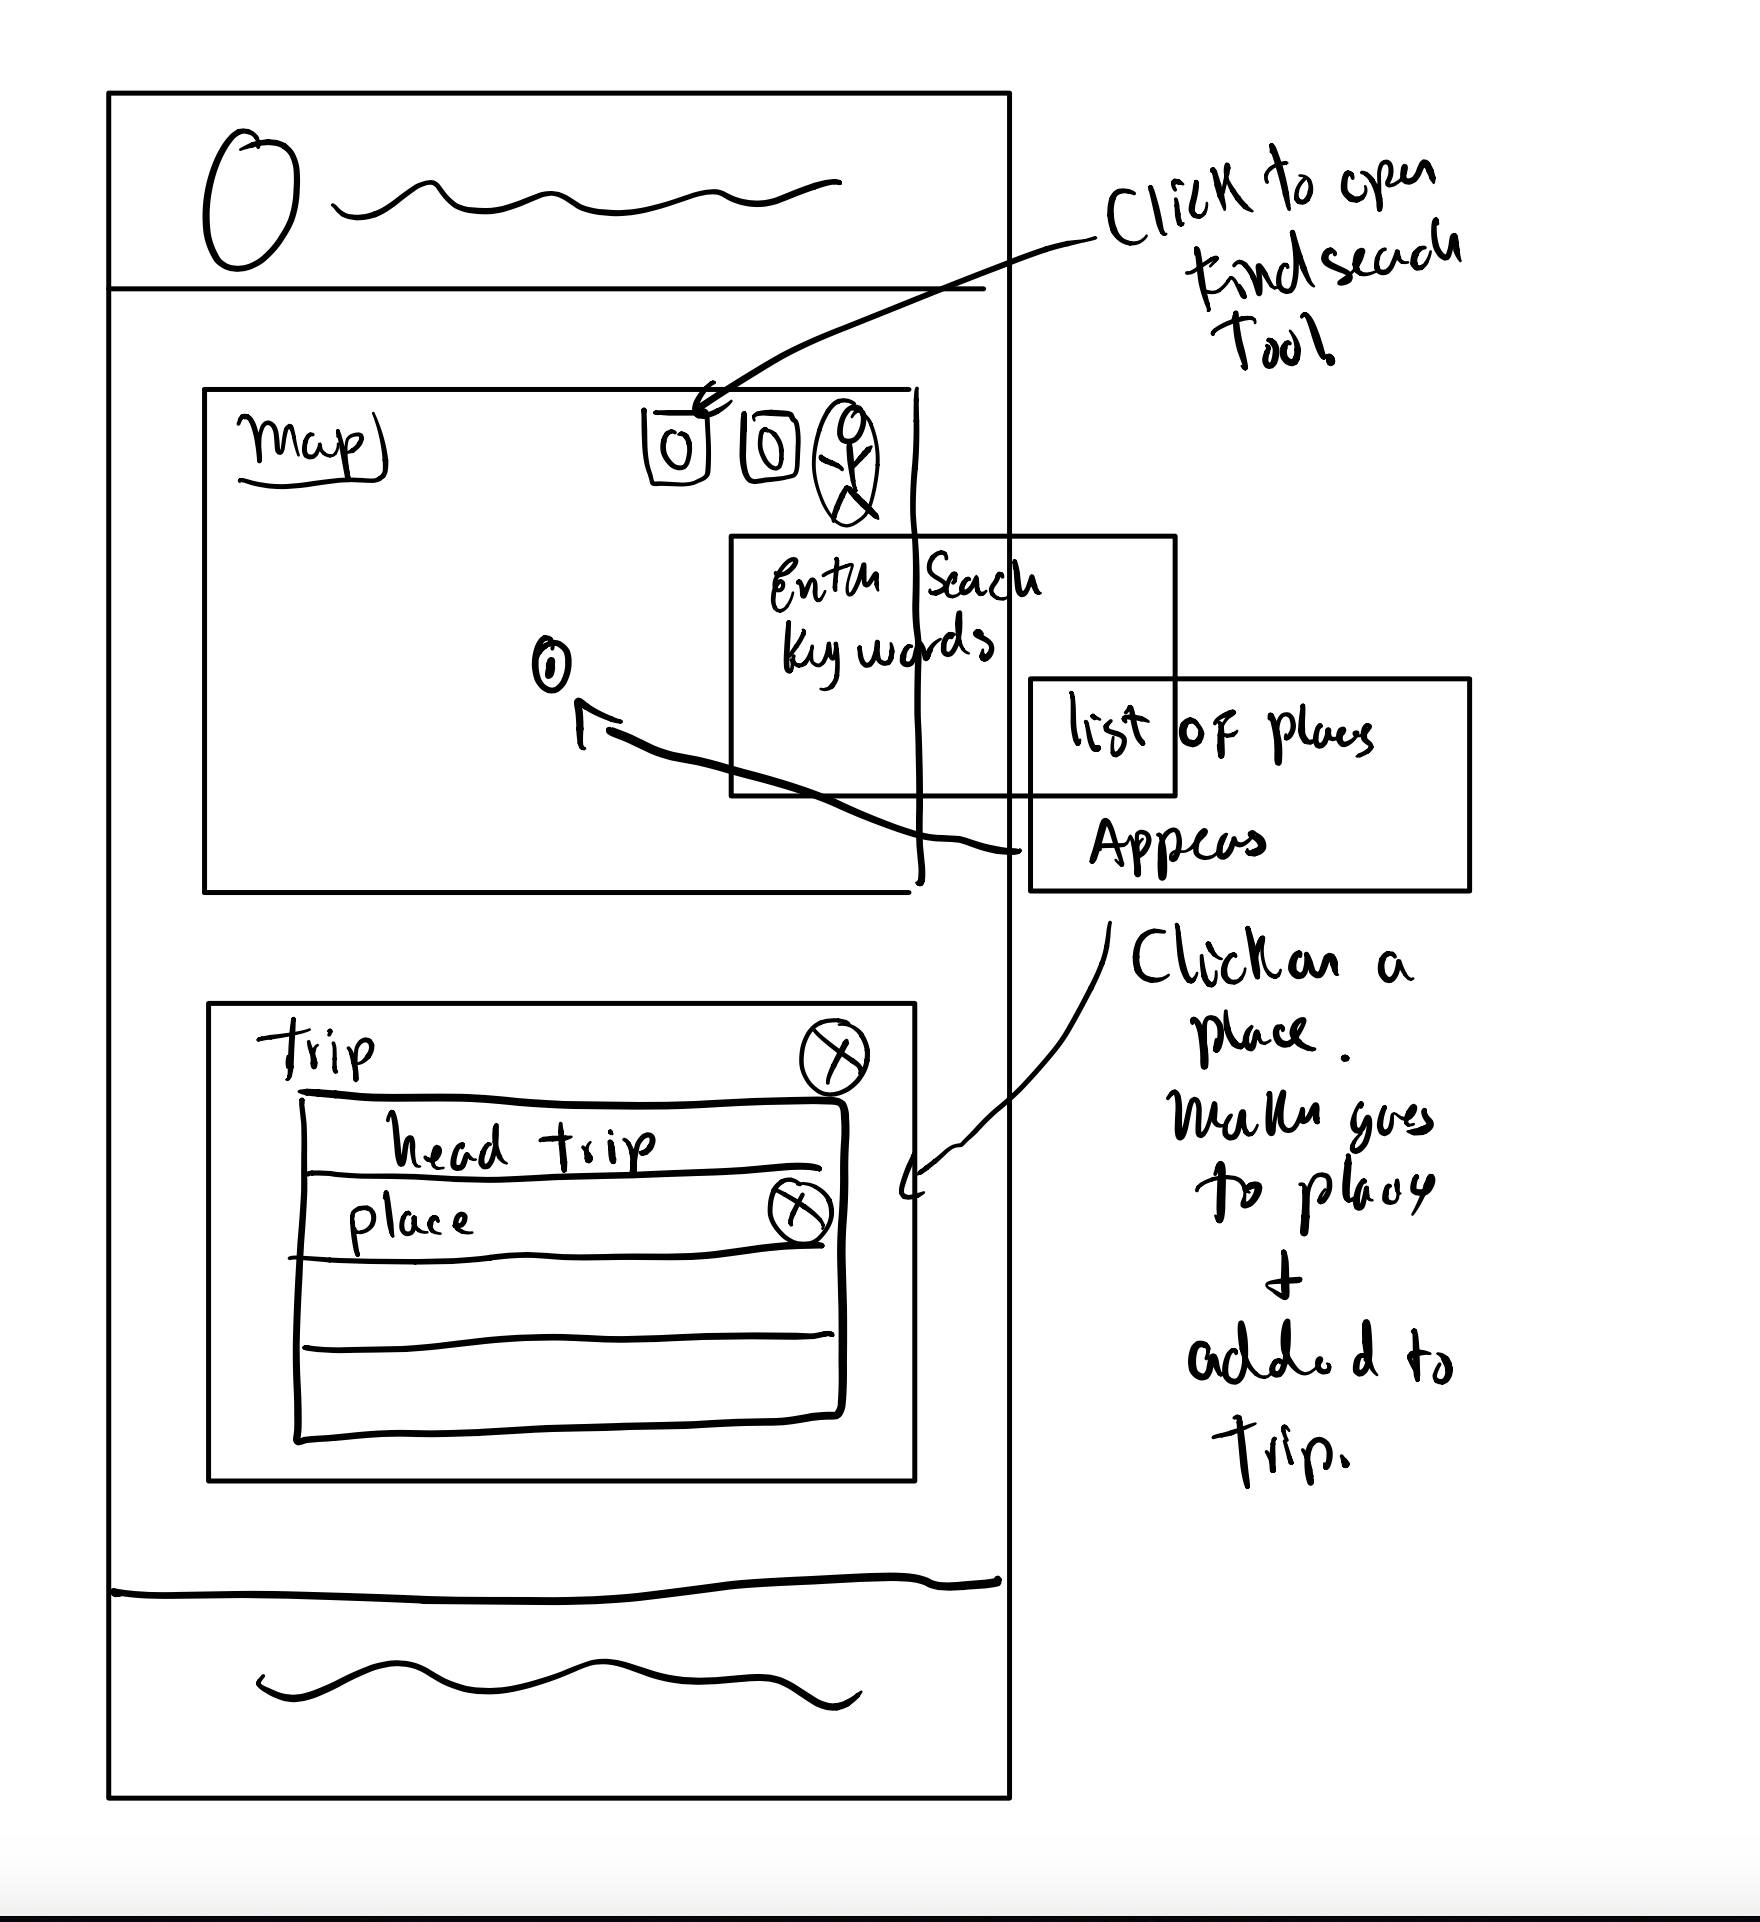 Click to open
find seach
Tool.
Map
Enter Seach
Key words
list of places
Appears
Click on a
place.
Marker goes
to place
+
added to
Trip.
trip
head trip
place